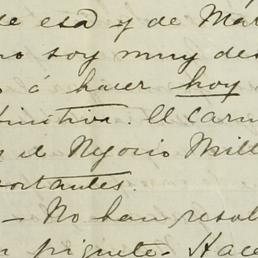 de esa y de Mar
no soy muy des
o á hacer hoy
finitiva. El Carm
el Negocio Mill
portantes.
— No han resol
n piquete. Hace